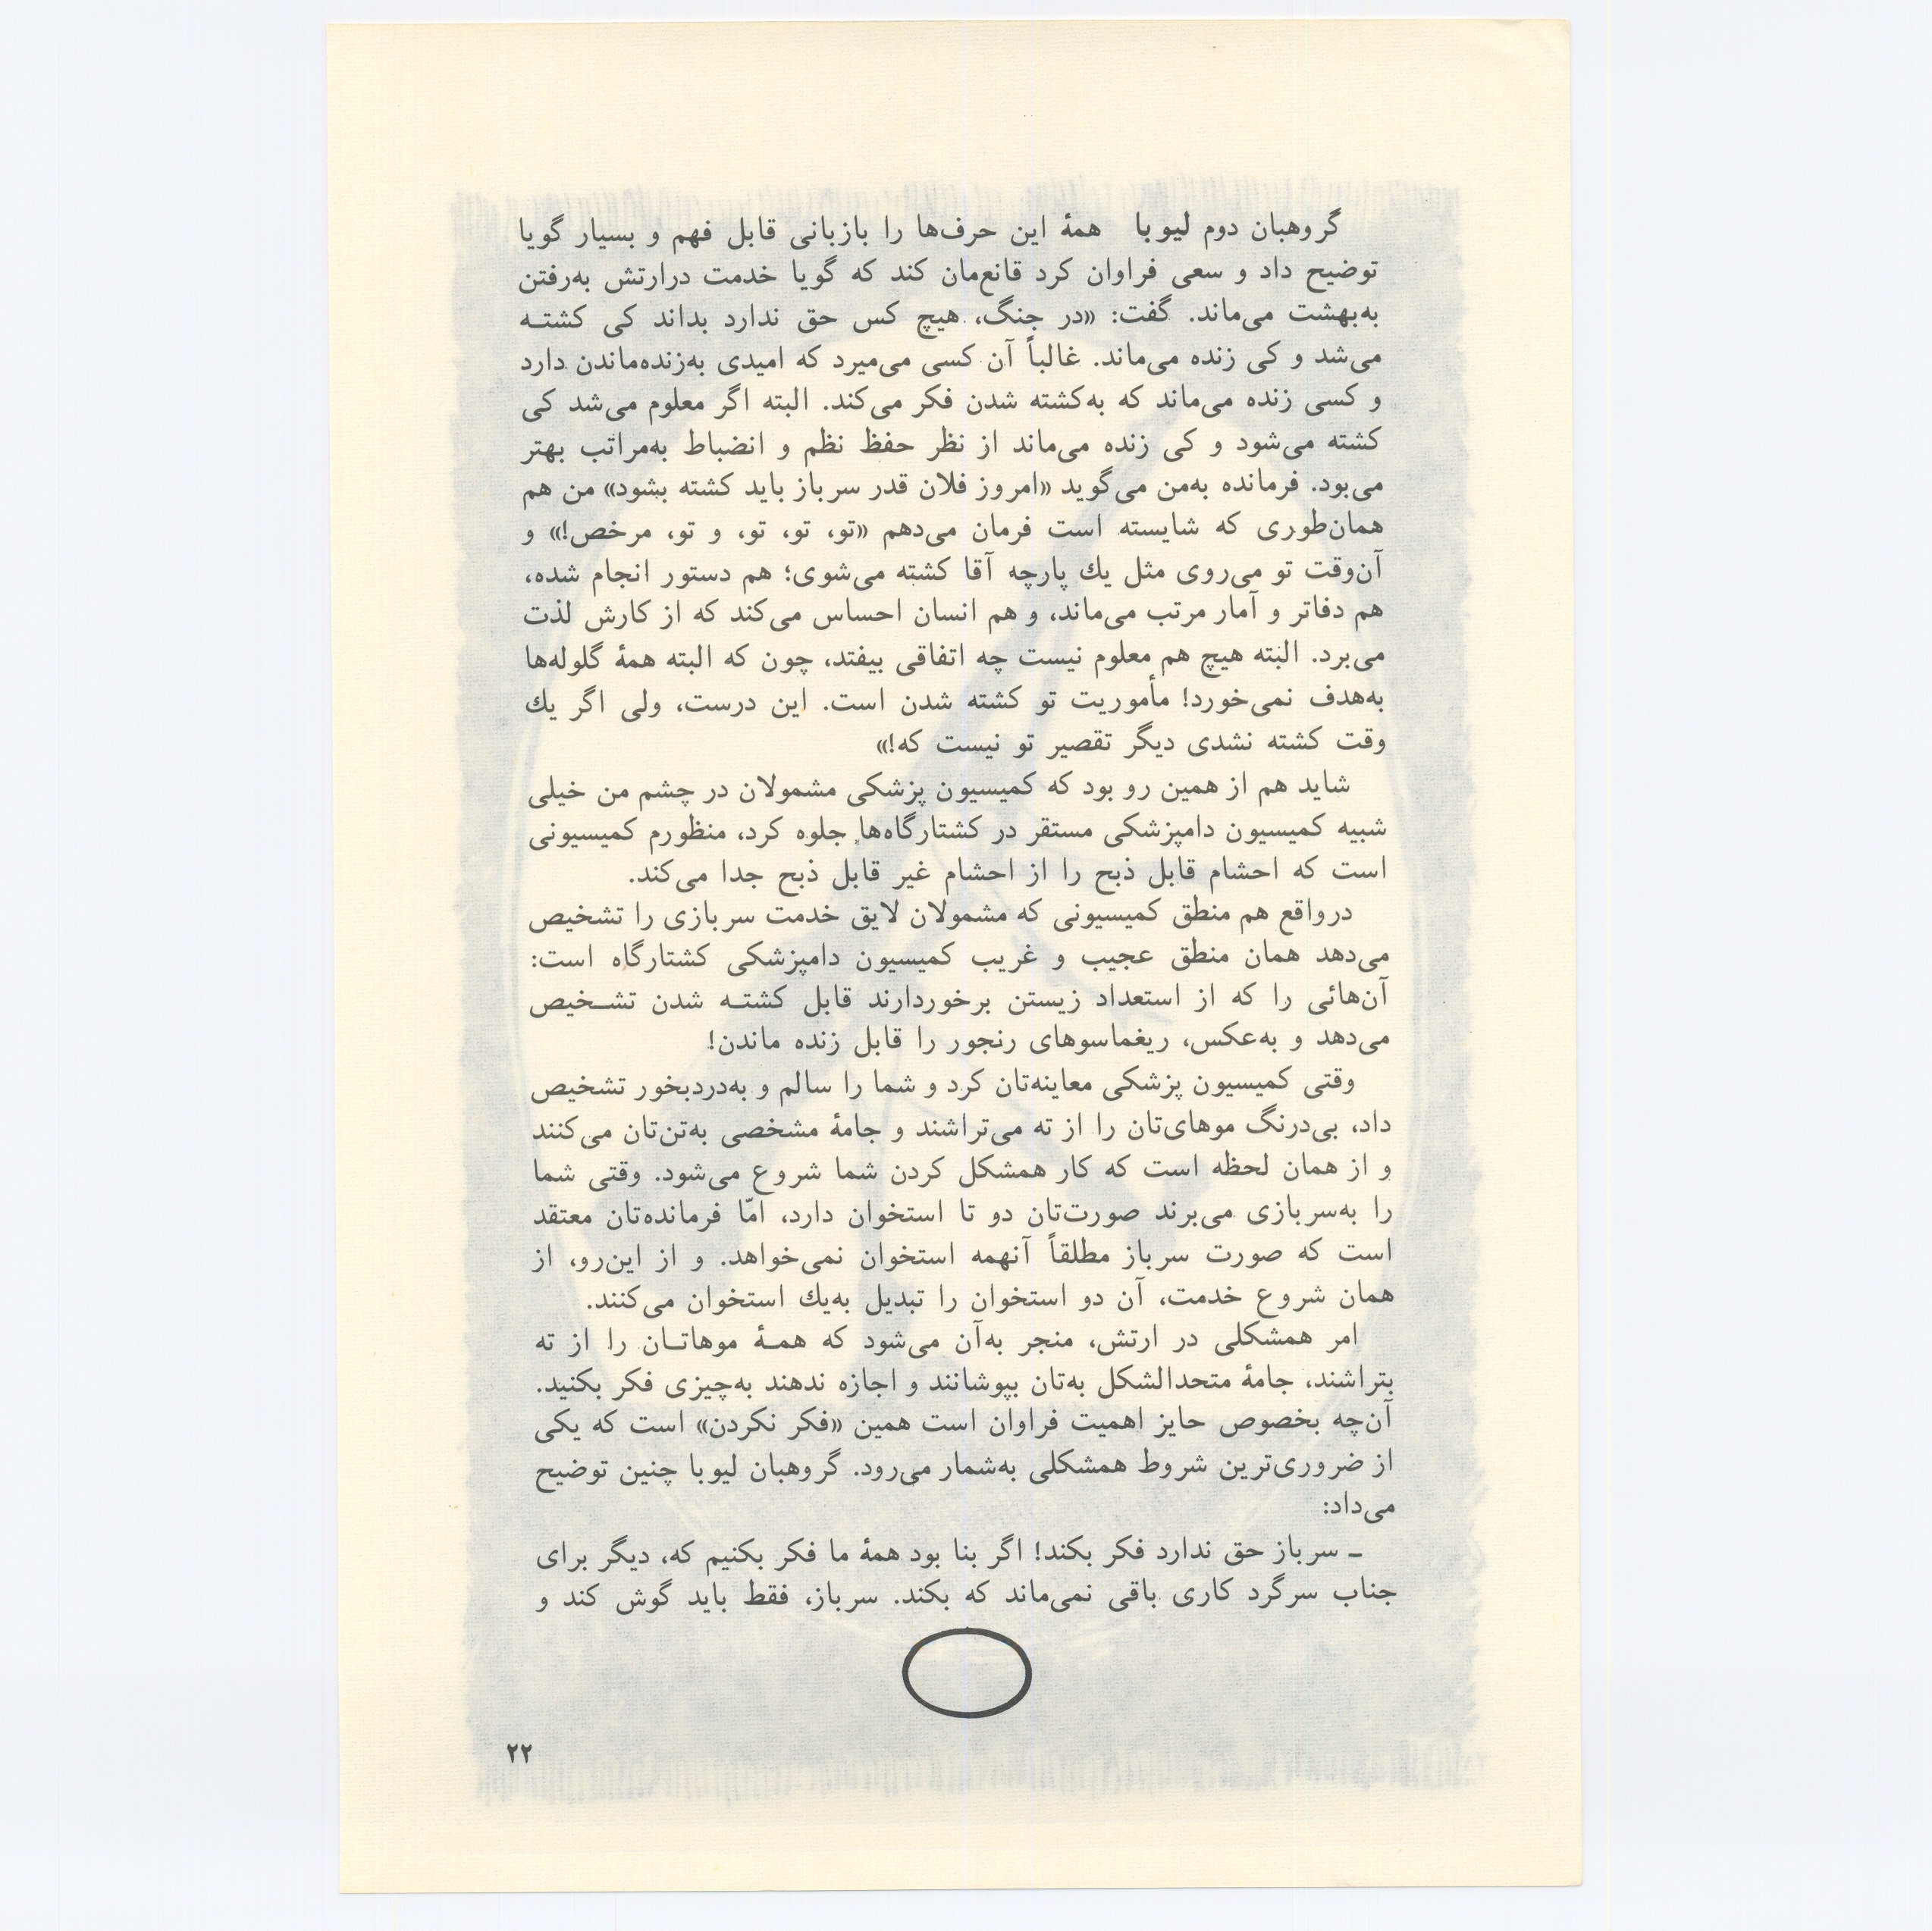 گروهبان دوم لیوبا همهٔ این حرف‌ها را بازبانی قابل فهم و بسیار گویا
توضیح داد و سعی فراوان کرد قانع‌مان کند که گویا خدمت درارتش به‌رفتن
به‌بهشت می‌ماند. گفت: «در جنگ، هیچ کس حق ندارد بداند کی کشتـه
می‌شد و کی زنده می‌ماند. غالباً آن کسی می‌میرد که امیدی به‌زنده‌ماندن دارد
و کسی زنده می‌ماند که به‌کشته شدن فکر می‌کند. البته اگر معلوم می‌شد کی
کشته می‌شود و کی زنده می‌ماند از نظر حفظ نظم و انضباط به‌مراتب بهتر
می‌بود. فرمانده به‌من می‌گوید «امروز فلان قدر سرباز باید کشته بشود» من هم
همان‌طوری که شایسته است فرمان می‌دهم «تو، تو، تو، و تو، مرخص!» و
آن‌وقت تو می‌روی مثل یك پارچه آقا کشته می‌شوی؛ هم دستور انجام شده،
هم دفاتر و آمار مرتب می‌ماند، و هم انسان احساس می‌کند که از کارش لذت
می‌برد. البته هیچ هم معلوم نیست چه اتفاقی بیفتد، چون که البته همهٔ گلوله‌ها
به‌هدف نمی‌خورد! مأموریت تو کشته شدن است. این درست، ولی اگر یك
وقت کشته نشدی دیگر تقصیر تو نیست که!»
شاید هم از همین رو بود که کمیسیون پزشکی مشمولان در چشم من خیلی
شبیه کمیسیون دامپزشکی مستقر در کشتارگاه‌ها جلوه کرد، منظورم کمیسیونی
است که احشام قابل ذبح را از احشام غیر قابل ذبح جدا می‌کند.
درواقع هم منطق کمیسیونی که مشمولان لایق خدمت سربازی را تشخیص
می‌دهد همان منطق عجیب و غریب کمیسیون دامپزشکی کشتارگاه است:
آن‌هائی را که از استعداد زیستن برخوردارند قابل کشتـه شدن تشـخیص
می‌دهد و به‌عکس، ریغماسوهای رنجور را قابل زنده ماندن!
وقتی کمیسیون پزشکی معاینه‌تان کرد و شما را سالم و به‌دردبخور تشخیص
داد، بی‌درنگ موهای‌تان را از ته می‌تراشند و جامهٔ مشخصی به‌تن‌تان می‌کنند
و از همان لحظه است که کار همشکل کردن شما شروع می‌شود. وقتی شما
را به‌سربازی می‌برند صورت‌تان دو تا استخوان دارد، امّا فرمانده‌تان معتقد
است که صورت سرباز مطلقاً آنهمه استخوان نمی‌خواهد. و از این‌رو، از
همان شروع خدمت، آن دو استخوان را تبدیل به‌یك استخوان می‌کنند.
امر همشکلی در ارتش، منجر به‌آن می‌شود که همـهٔ موهاتـان را از ته
بتراشند، جامهٔ متحدالشکل به‌تان بپوشانند و اجازه ندهند به‌چیزی فکر بکنید.
آن‌چه بخصوص حایز اهمیت فراوان است همین «فکر نکردن» است که یکی
از ضروری‌ترین شروط همشکلی به‌شمار می‌رود. گروهبان لیوبا چنین توضیح
می‌داد:
ـ سرباز حق ندارد فکر بکند! اگر بنا بود همهٔ ما فکر بکنیم که، دیگر برای
جناب سرگرد کاری باقی نمی‌ماند که بکند. سرباز، فقط باید گوش کند و
۲۲